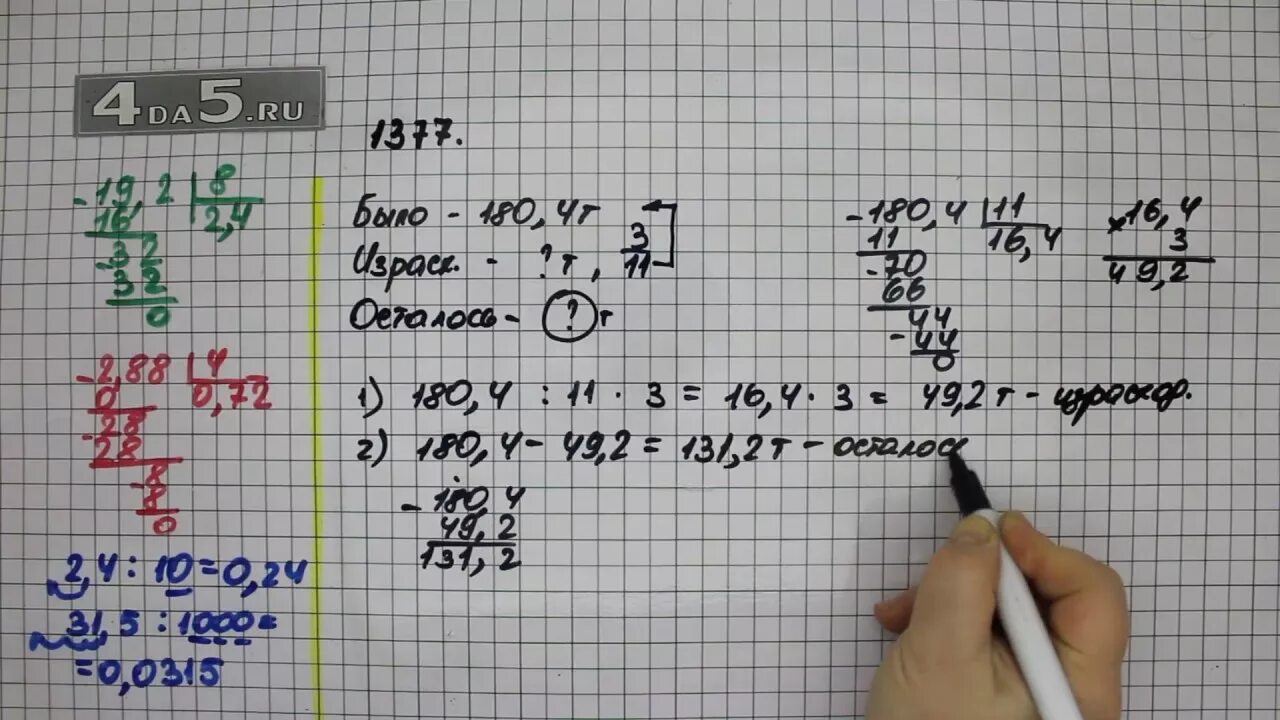 4DA5.RU
1377.
-19,2 8
16 2,4
-32
32
0
-2,88 4
0 0,72
-28
28
-8
8
0
2,4 : 10 = 0,24
31,5 : 1000 =
= 0,0315
Было - 180,4т
Израсх. - ? т, 3/11
Осталось - ? т
-180,4 11
11 16,4
-70
66
44
-44
0
×16,4
3
49,2
1) 180,4 : 11 · 3 = 16,4 · 3 = 49,2 т - израсход.
2) 180,4 - 49,2 = 131,2 т - осталось
-180,4
49,2
131,2